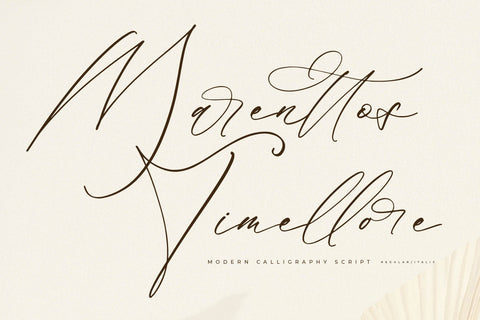 Marenttos
Timellore
MODERN CALLIGRAPHY SCRIPT REGULAR/ITALIC